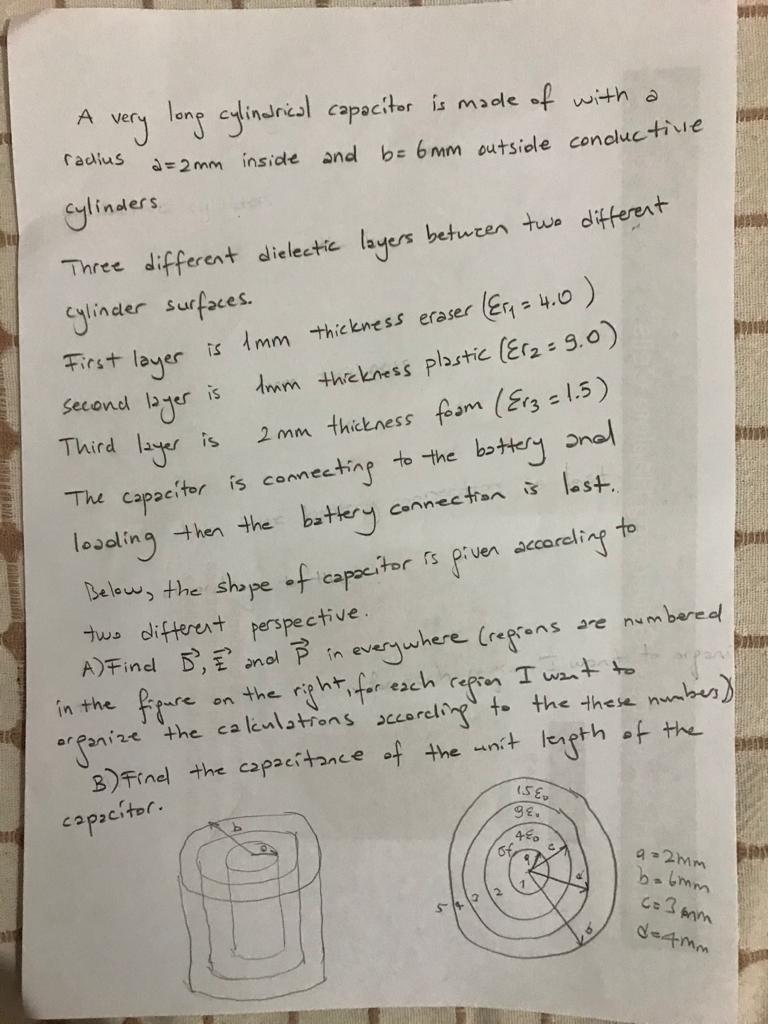 A very long cylindrical capacitor is made of with a
radius a=2mm inside and b=6mm outside conductive
cylinders.
Three different dielectic layers between two different
cylinder surfaces.
First layer is 1mm thickness eraser (Er1 = 4.0)
second layer is 1mm thickness plastic (Er2 = 9.0)
Third layer is 2mm thickness foam (Er3 = 1.5)
The capacitor is connecting to the battery and
loading then the battery connection is lost.
Below, the shape of capacitor is given according to
two different perspective.
A) Find D, E and P in everywhere (regions are numbered
in the figure on the right, for each region I want to
organize the calculations according to the these numbers))
B) Find the capacitance of the unit length of the
capacitor.
b
a
1.5ε0
9ε0
4ε0
a
c
d
b
5 4 3 2 1
a=2mm
b=6mm
c=3mm
d=4mm